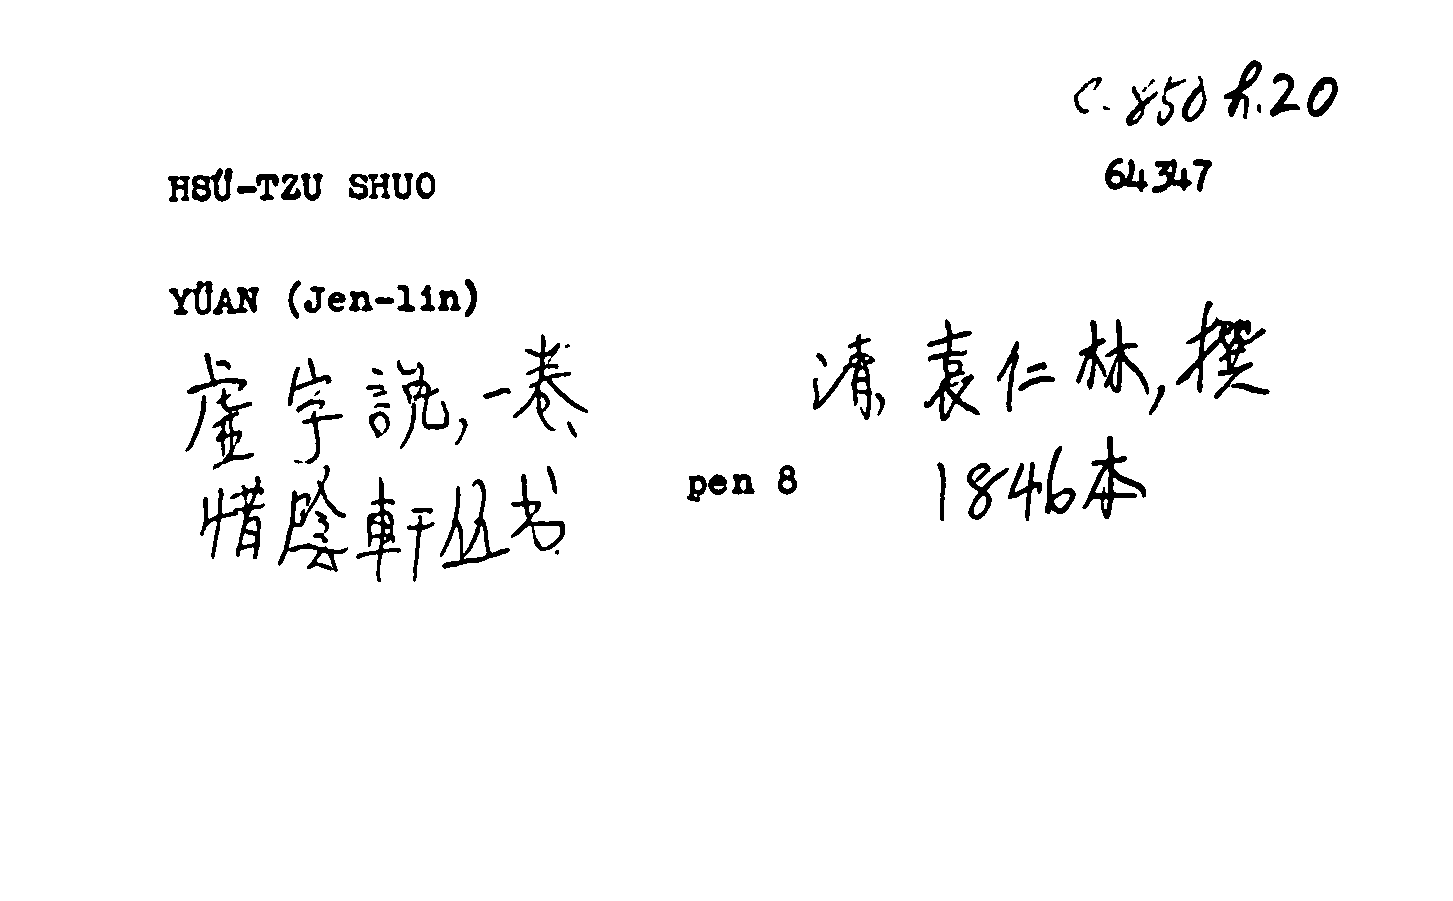 C. 850 h. 20
64347
HSÜ-TZU SHUO
YÜAN (Jen-lin)
虛字說, 一卷、 清, 袁仁林, 撰
惜陰軒丛书 pen 8 1846本